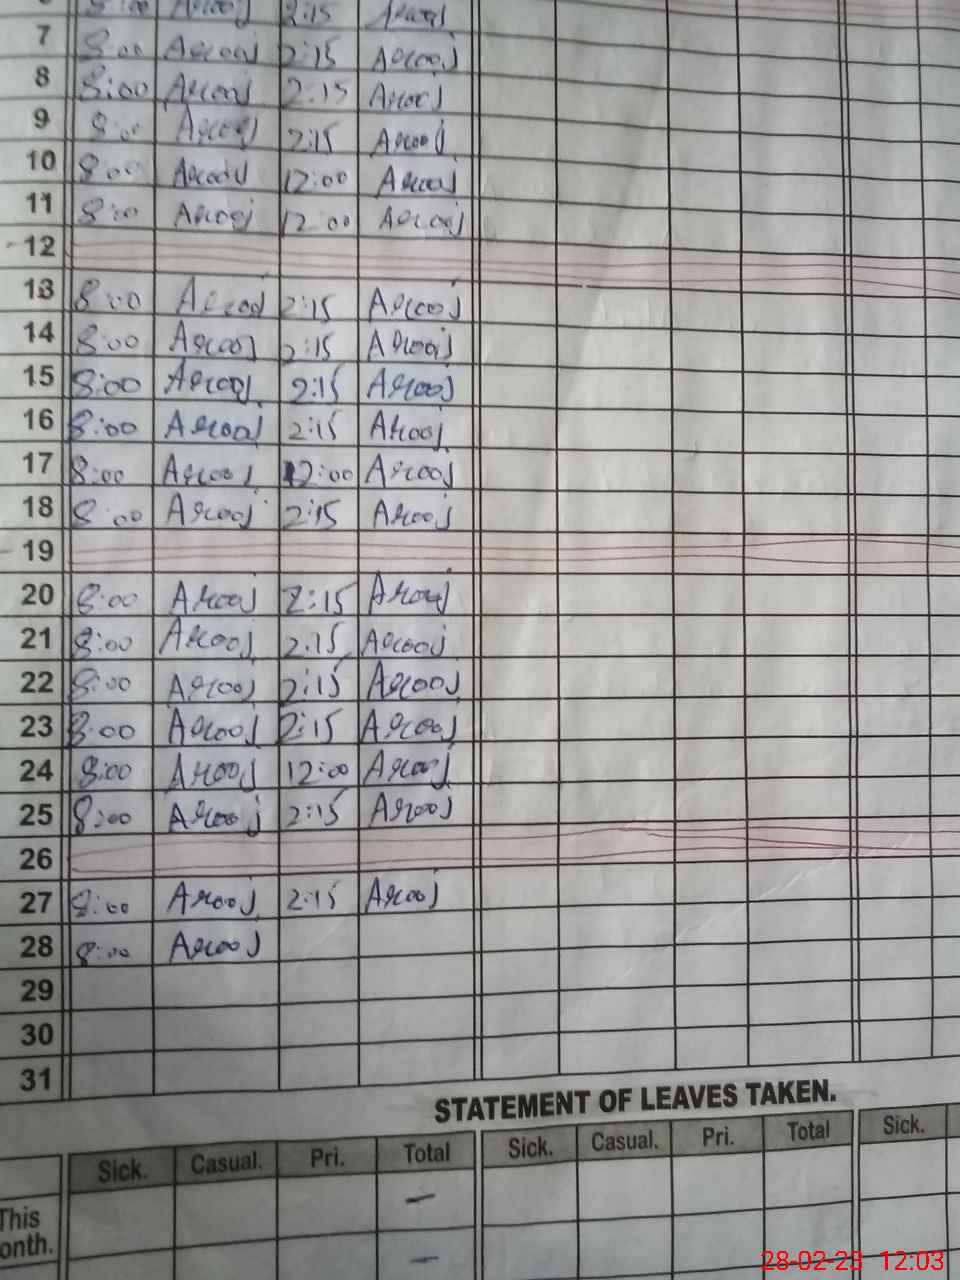 8:00 Arooj 2:15 Arooj
7 8:00 Arooj 2:15 Arooj
8 8:00 Arooj 2:15 Arooj
9 8:00 Arooj 2:15 Arooj
10 8:00 Arooj 12:00 Arooj
11 8:00 Arooj 12:00 Arooj
12
13 8:00 Arooj 2:15 Arooj
14 8:00 Arooj 2:15 Arooj
15 8:00 Arooj 2:15 Arooj
16 8:00 Arooj 2:15 Arooj
17 8:00 Arooj 12:00 Arooj
18 8:00 Arooj 2:15 Arooj
19
20 8:00 Arooj 2:15 Arooj
21 8:00 Arooj 2:15 Arooj
22 8:00 Arooj 2:15 Arooj
23 8:00 Arooj 2:15 Arooj
24 8:00 Arooj 12:00 Arooj
25 8:00 Arooj 2:15 Arooj
26
27 8:00 Arooj 2:15 Arooj
28 8:00 Arooj
29
30
31
STATEMENT OF LEAVES TAKEN.
Sick. Casual. Pri. Total Sick. Casual. Pri. Total Sick.
This —
onth. —
28-02-23 12:03